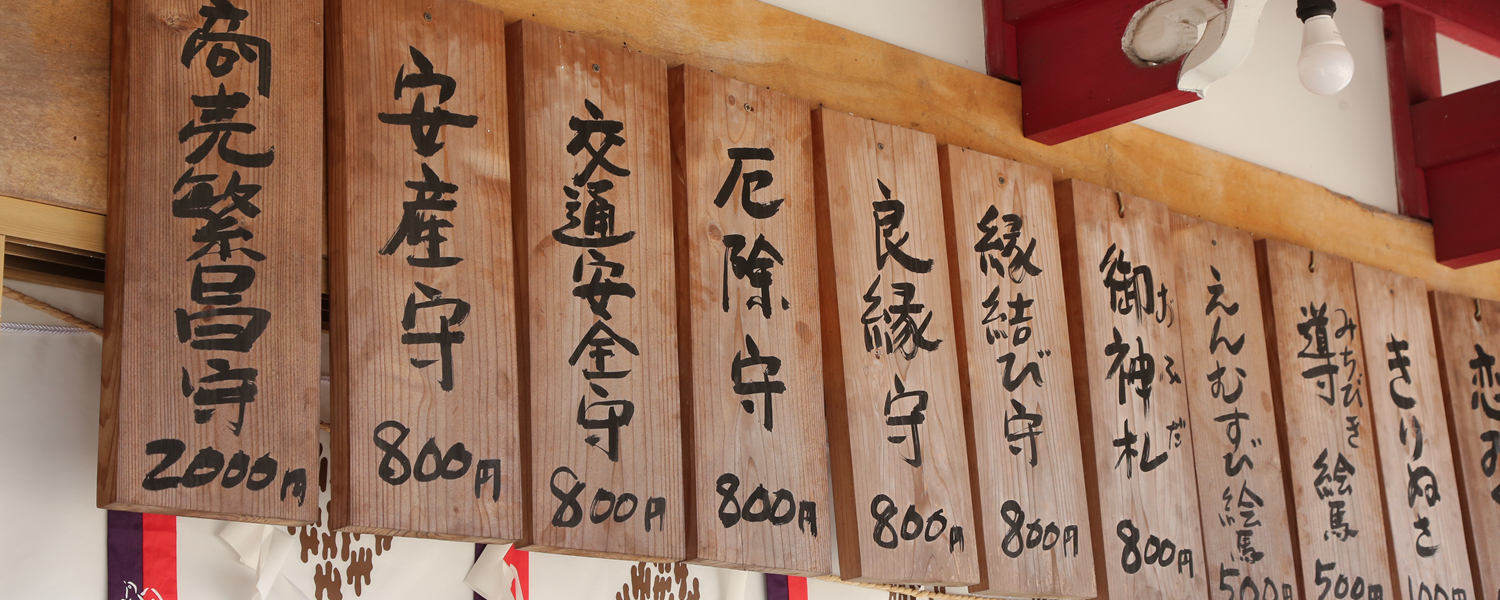 商売繁昌守
2000円
安産守
800円
交通安全守
800円
厄除守
800円
良縁守
800円
縁結び守
800円
御神札
おふだ
800円
えんむすび絵馬
500円
導守絵馬
みちびき
500円
きりぬさ
100円
恋み